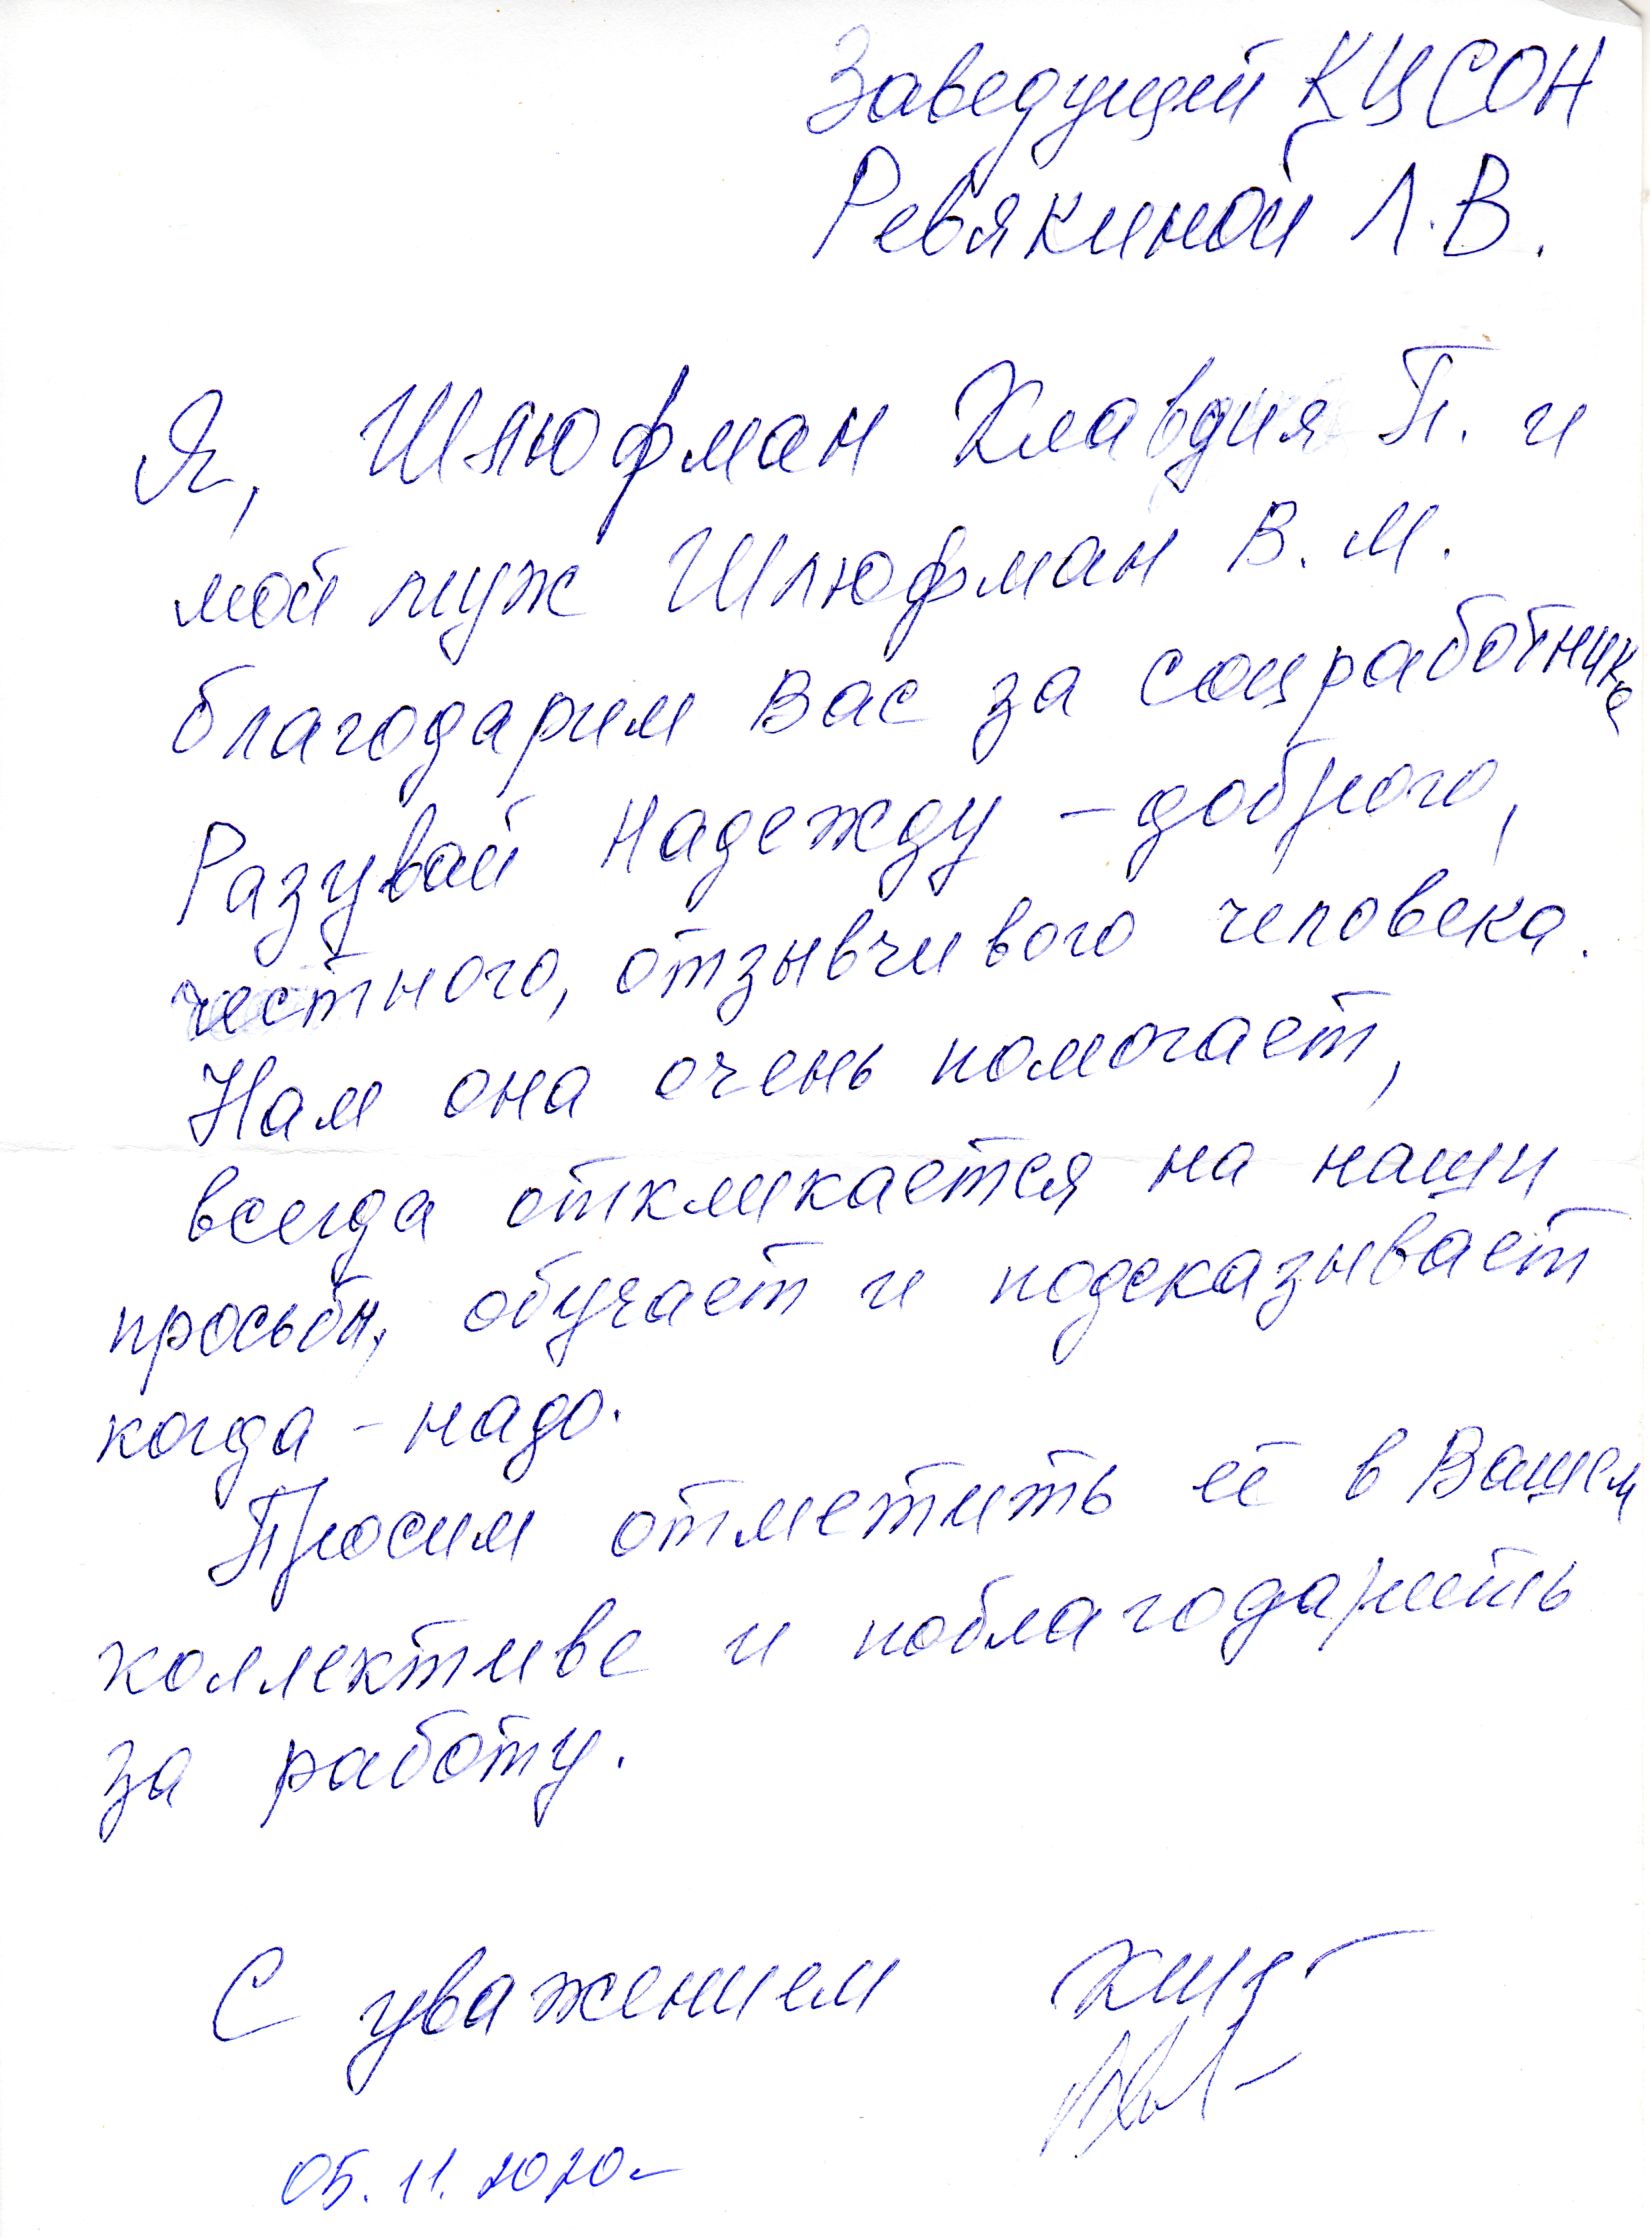 Заведущей КЦСОН
Ревякиной Л.В.
Я, Шлюфман Клавдия П. и
мой муж Шлюфман В.М.
благодарим Вас за соцработника
Разувай Надежду - доброго,
честного, отзывчивого человека.
Нам она очень помогает,
всегда откликается на наши
просьбы, обучает и подсказывает
когда - надо.
Просим отметить её в Вашем
коллективе и поблагодарить
за работу.
С уважением
05.11.2020